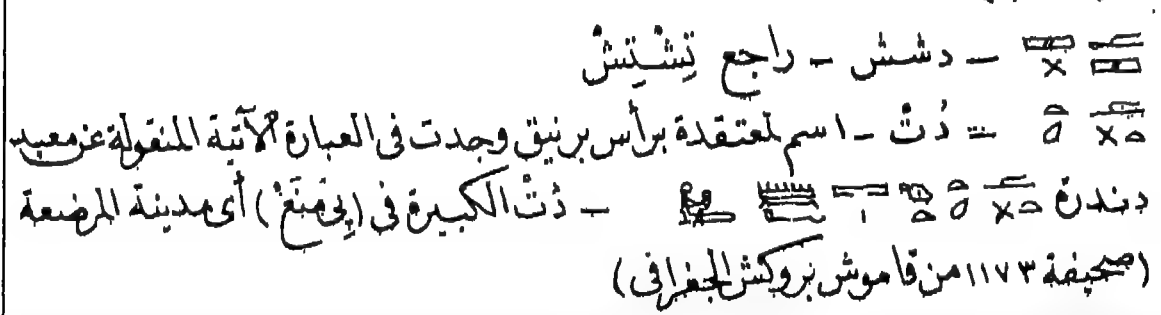 – دشش – راجع تِشْتِشْ
= دُتْ – اسم لمعتقدة برأس برنيق وجدت فى العبارة الآتية المنقولة عن معبد
دندرة – دُتْ الكبيرة فى (پى مِنَعْ) أى مدينة المرضعة
(صحيفة ١١٧٣ من قاموش بروكتش الجغرافى)